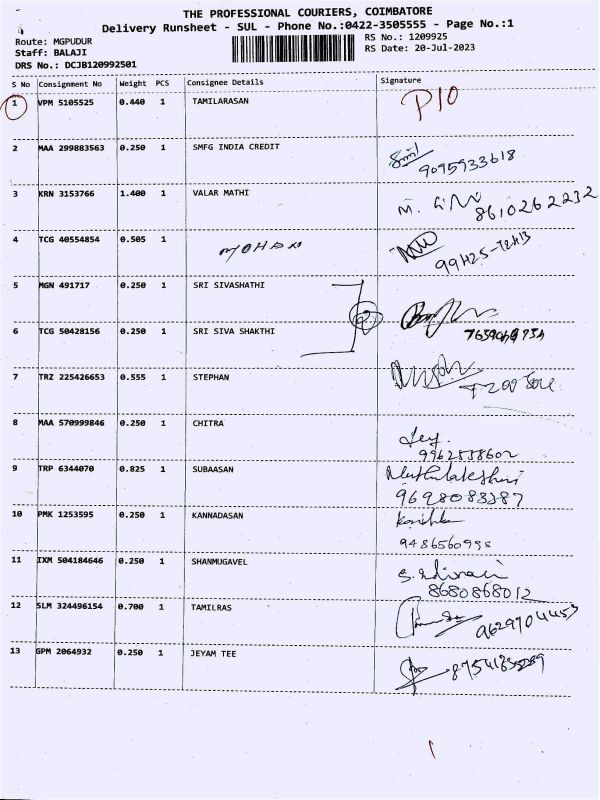 THE PROFESSIONAL COURIERS, COIMBATORE
Delivery Runsheet - SUL - Phone No.:0422-3505555 - Page No.:1
Route: MGPUDUR RS No.: 1209925
Staff: BALAJI RS Date: 20-Jul-2023
DRS No.: DCJB120992501
S No Consignment No Weight PCS Consignee Details Signature
1 VPM 5105525 0.440 1 TAMILARASAN P10
2 MAA 299883563 0.250 1 SMFG INDIA CREDIT
9095933618
3 KRN 3153766 1.400 1 VALAR MATHI
8610262232
4 TCG 40554854 0.505 1 MOHAN
5 MGN 491717 0.250 1 SRI SIVASHATHI
6 TCG 50428156 0.250 1 SRI SIVA SHAKTHI 2
7 TRZ 225426653 0.555 1 STEPHAN
8 MAA 570999846 0.250 1 CHITRA
9 TRP 6344070 0.825 1 SUBAASAN Muthulakshmi
10 PMK 1253595 0.250 1 KANNADASAN
11 IXM 504184646 0.250 1 SHANMUGAVEL
8680868012
12 SLM 324496154 0.700 1 TAMILRAS
9629704453
13 GPM 2064932 0.250 1 JEYAM TEE